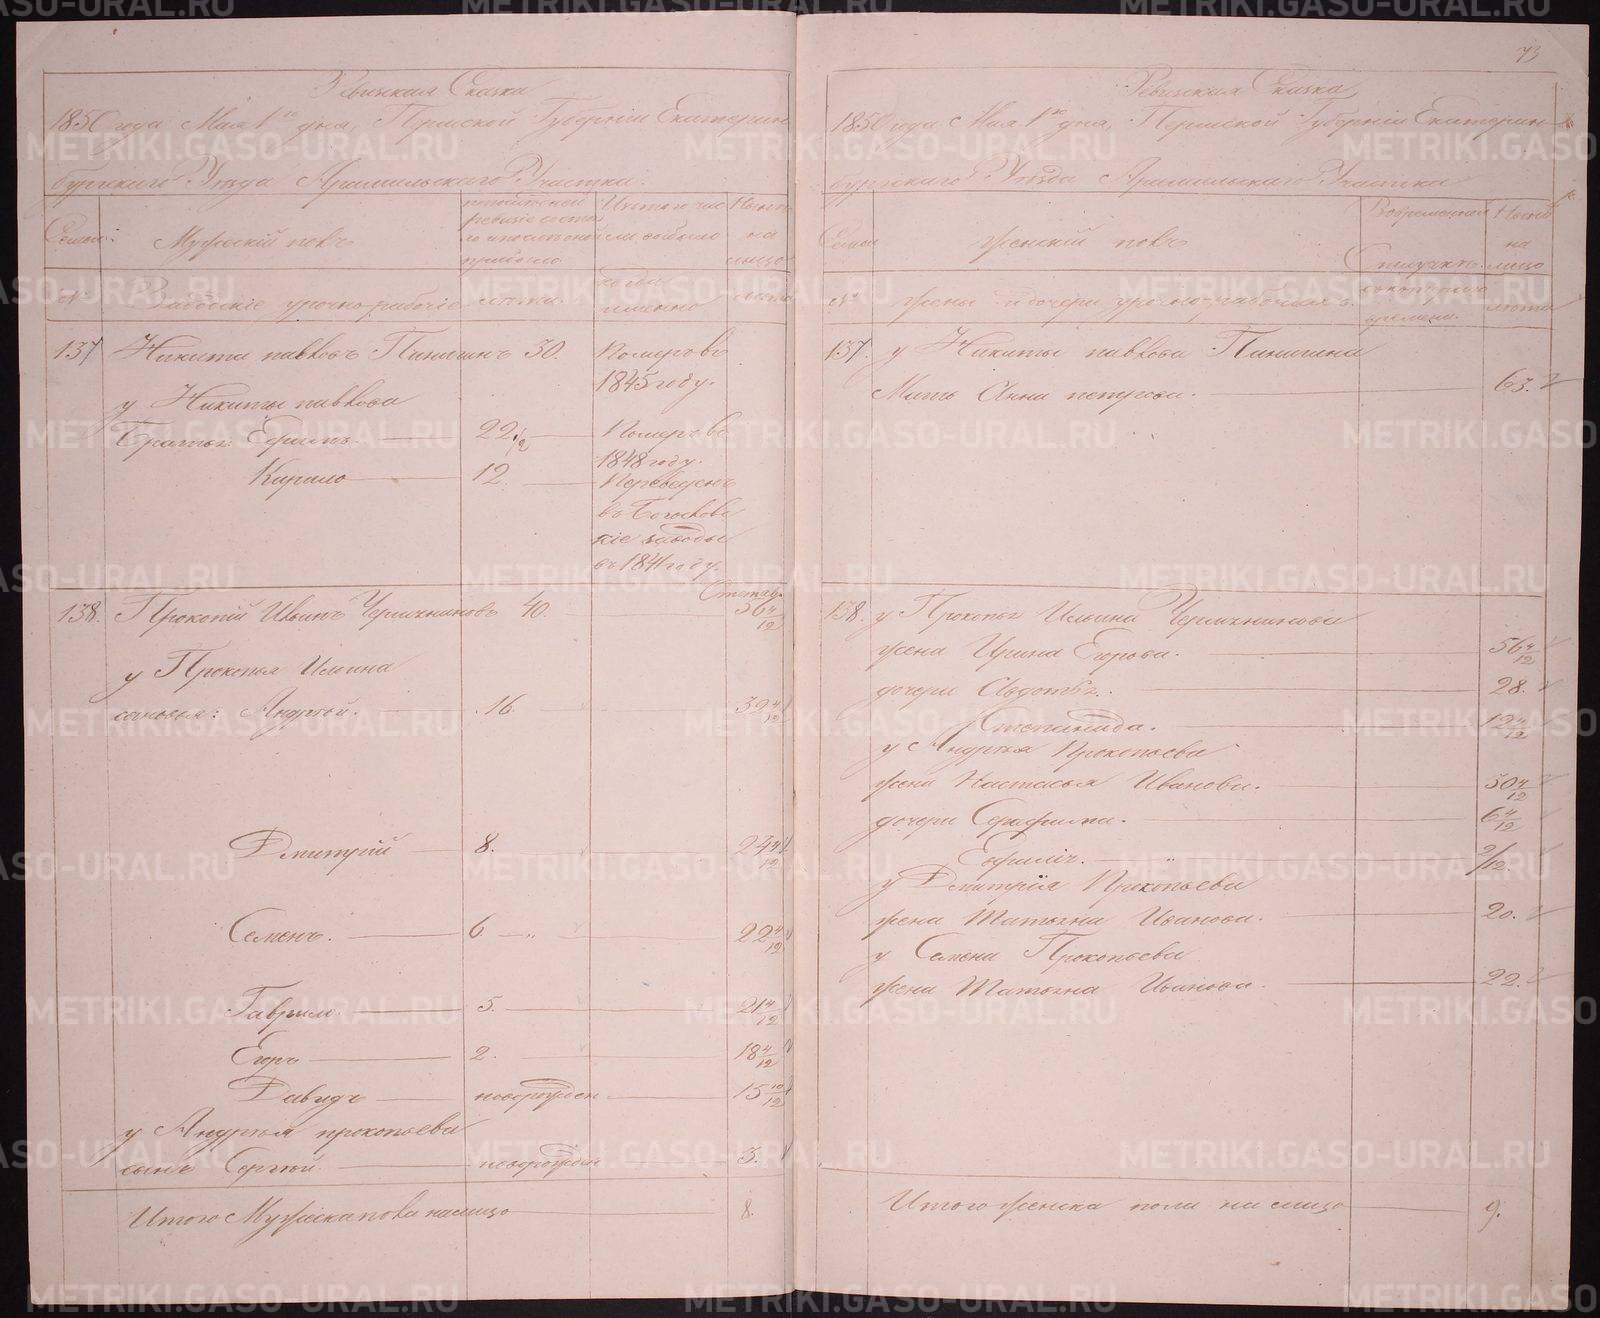 Ревизская Сказка
1850 года Мая 1го дня, Пермской Губернiи Екатерин
бургскаго Уезда Арамильскаго Участка.
Семьи:
Мужескiй полъ
На лицо
№
Заводскiе урочно-рабочiе
лета.
когда именно
лета
137 Никита павловъ 30. Померъ въ
1845 году.
у Никиты павлова
Братья: Ефимъ. 22 1/2 Померъ въ
1848 году.
Кирило 12. Переведенъ
въ Богословс
кiе заводы
въ 1841 году.
138. Прокопiй Ильинъ 40. 56 4/12
у Прокопья Ильина
сыновья: Андрей. 16. 32 4/12
Дмитрiй 8. 24 4/12
Семенъ. 6. 22 4/12
Гаврило. 5. 21 4/12
Егоръ 2. 18 4/12
Давидъ новорожден 15 10/12
у Андрея прокопьева
сынъ Сергей новорожден 3.
Итого Мужеска пола на лицо 8.
73
Ревизская Сказка
1850 года Мая 1го дня, Пермской Губернiи Екатерин-
бургскаго Уезда Арамильскаго Участка
Семьи
Женскiй полъ
Во временной
отлучке.
съ котораго
времени.
Ныне
на
лицо
№
жены и дочери урочно-рабочихъ.
лета
137. у Никиты павлова
Мать Анна петрова. 63.
138. у Прокопья Ильина
жена Ирина Егорова. 56 4/12
дочери Авдотья. 28.
Степанида. 12 4/12
у Андрея Прокопьева
жена Насталья Иванова. 30 4/12
дочери Серафима. 6 4/12
2/12.
у Дмитрiя Прокопьева
жена Татьяна Иванова. 20.
у Семена Прокопьева
жена Татьяна Иванова. 22.
Итого женска пола на лицо 9.
METRIKI.GASO-URAL.RU